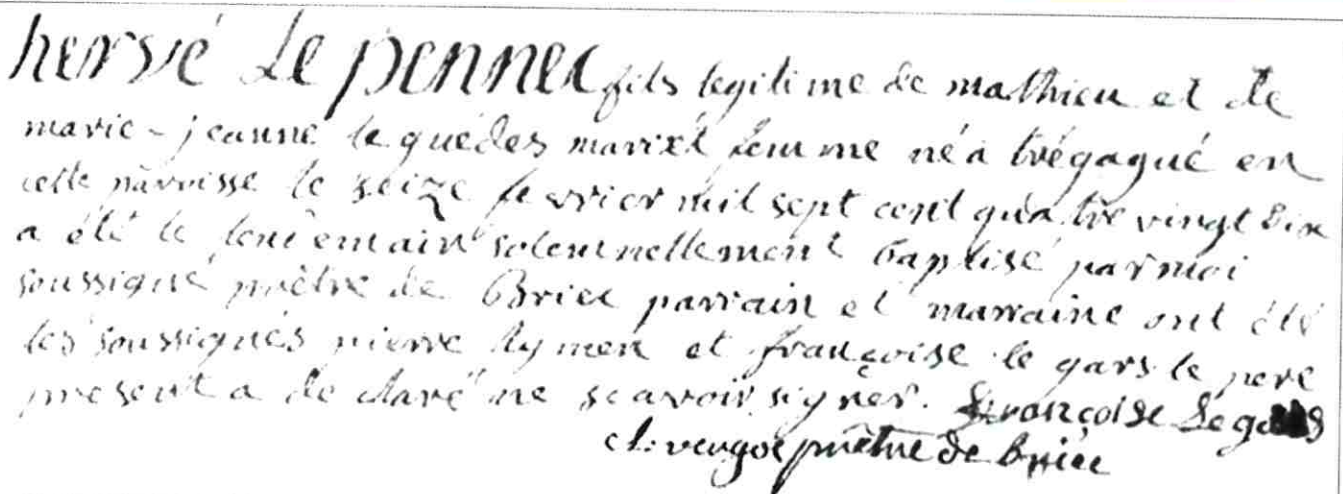 hervé Le pennec fils legitime de mathieu et de
marie-jeanne le quédes mari et femme né à trégagué en
cette parroisse le seize fevrier mil sept cent quatre vingt dix
a été le lendemain solemnellement baptisé par moi
soussigné prêtre de Briec parrain et marraine ont été
les soussignés pierre et françoise le gars le pere
present a declaré ne scavoir signer. françoise Le gars
prêtre de briec